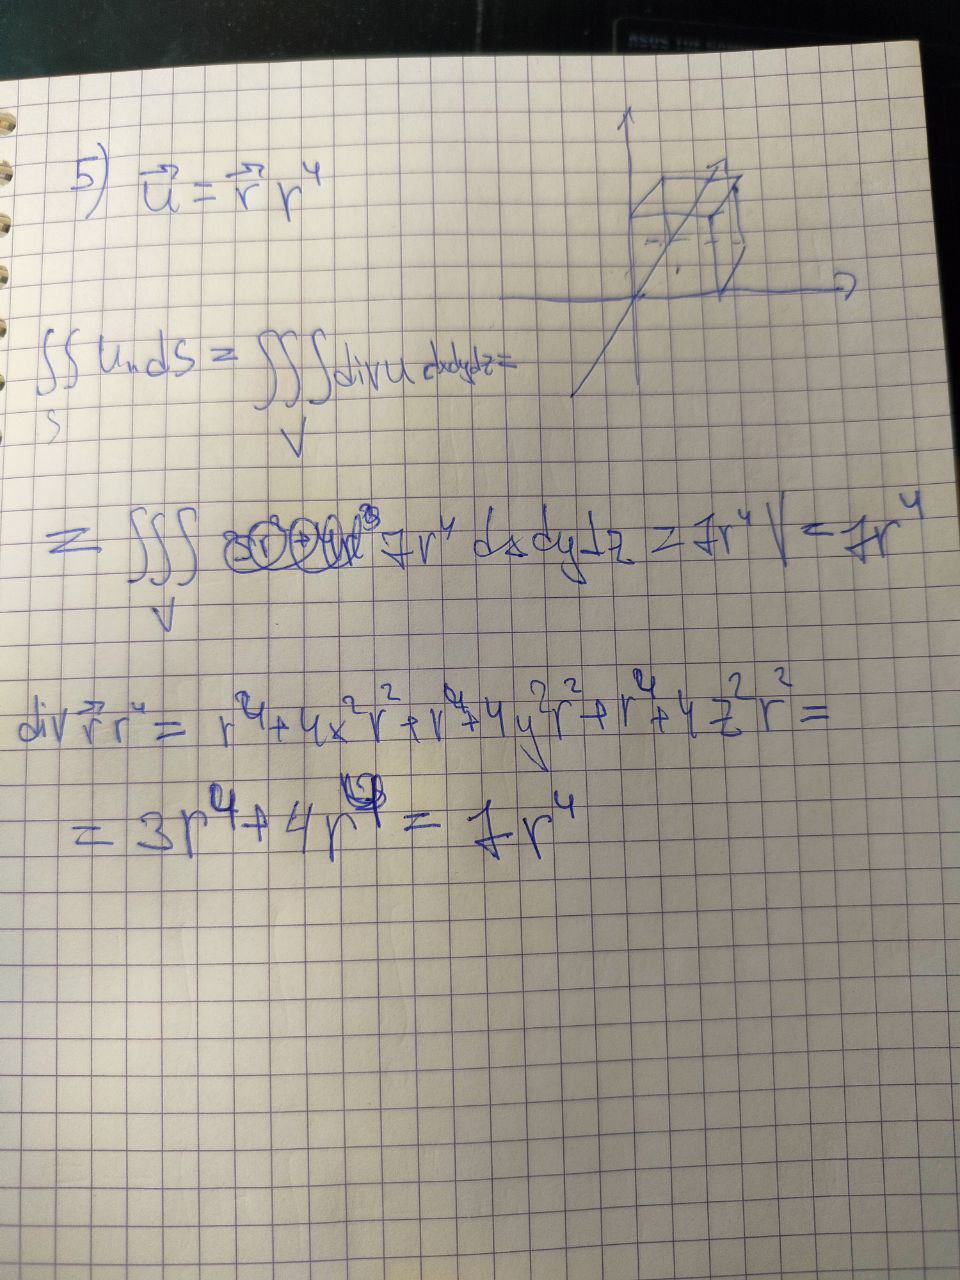 5) u⃗ = r⃗ r⁴
∬ uₙ dS = ∭ div u dxdydz =
S V
= ∭ 7r⁴ dx dy dz = 7r⁴ V = 7r⁴
V
div r⃗ r⁴ = r⁴ + 4x²r² + r⁴ + 4y²r² + r⁴ + 4z²r² =
= 3r⁴ + 4r⁴ = 7r⁴